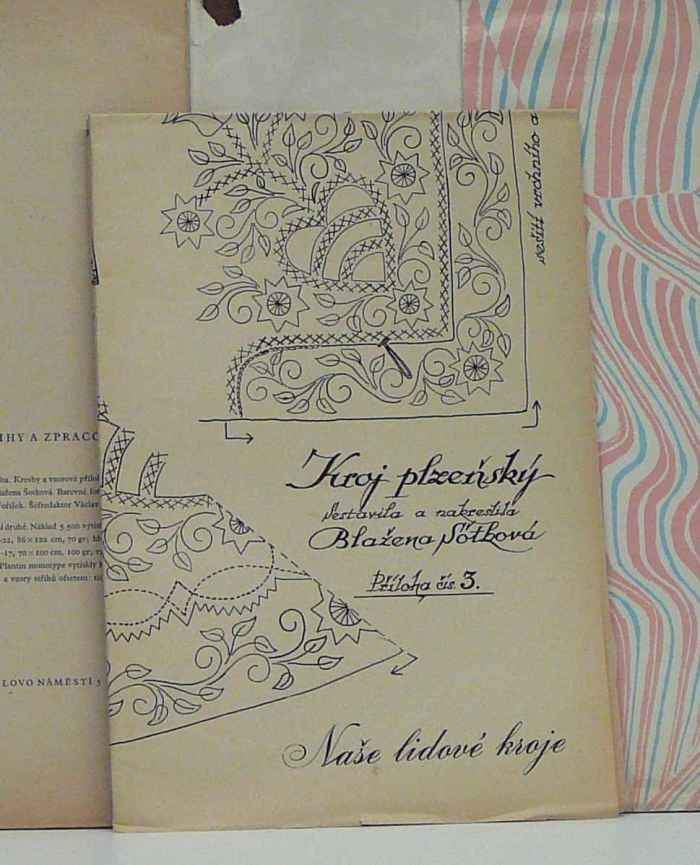 sešití vrchního a
Kroj plzeňský
Sestavila a nakreslila
Blažena Šotková
Příloha čís. 3.
Naše lidové kroje
IHY A ZPRACO
Kresby a vzorová příloh
ažena Šotková. Barevné fot
Šéfredaktor Václav
druhé. Náklad 5.500 výtis
-22, 86 x 122 cm, 70 gr;
-17, 70 x 100 cm, 100 gr,
Plantin monotype vytiskly
a vzory střihů ofsetem:
LOVO NÁMĚSTÍ 5